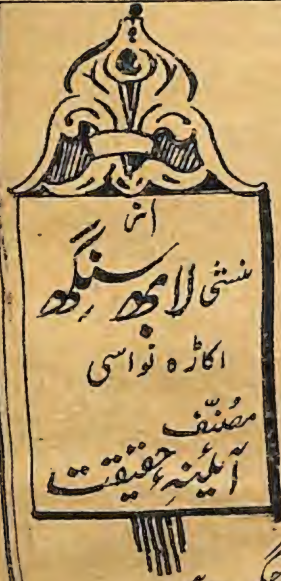 از
منشی لابھ سنگھ
اکاڑہ نواسی
مصنّف
آئینہءِ حقیقت